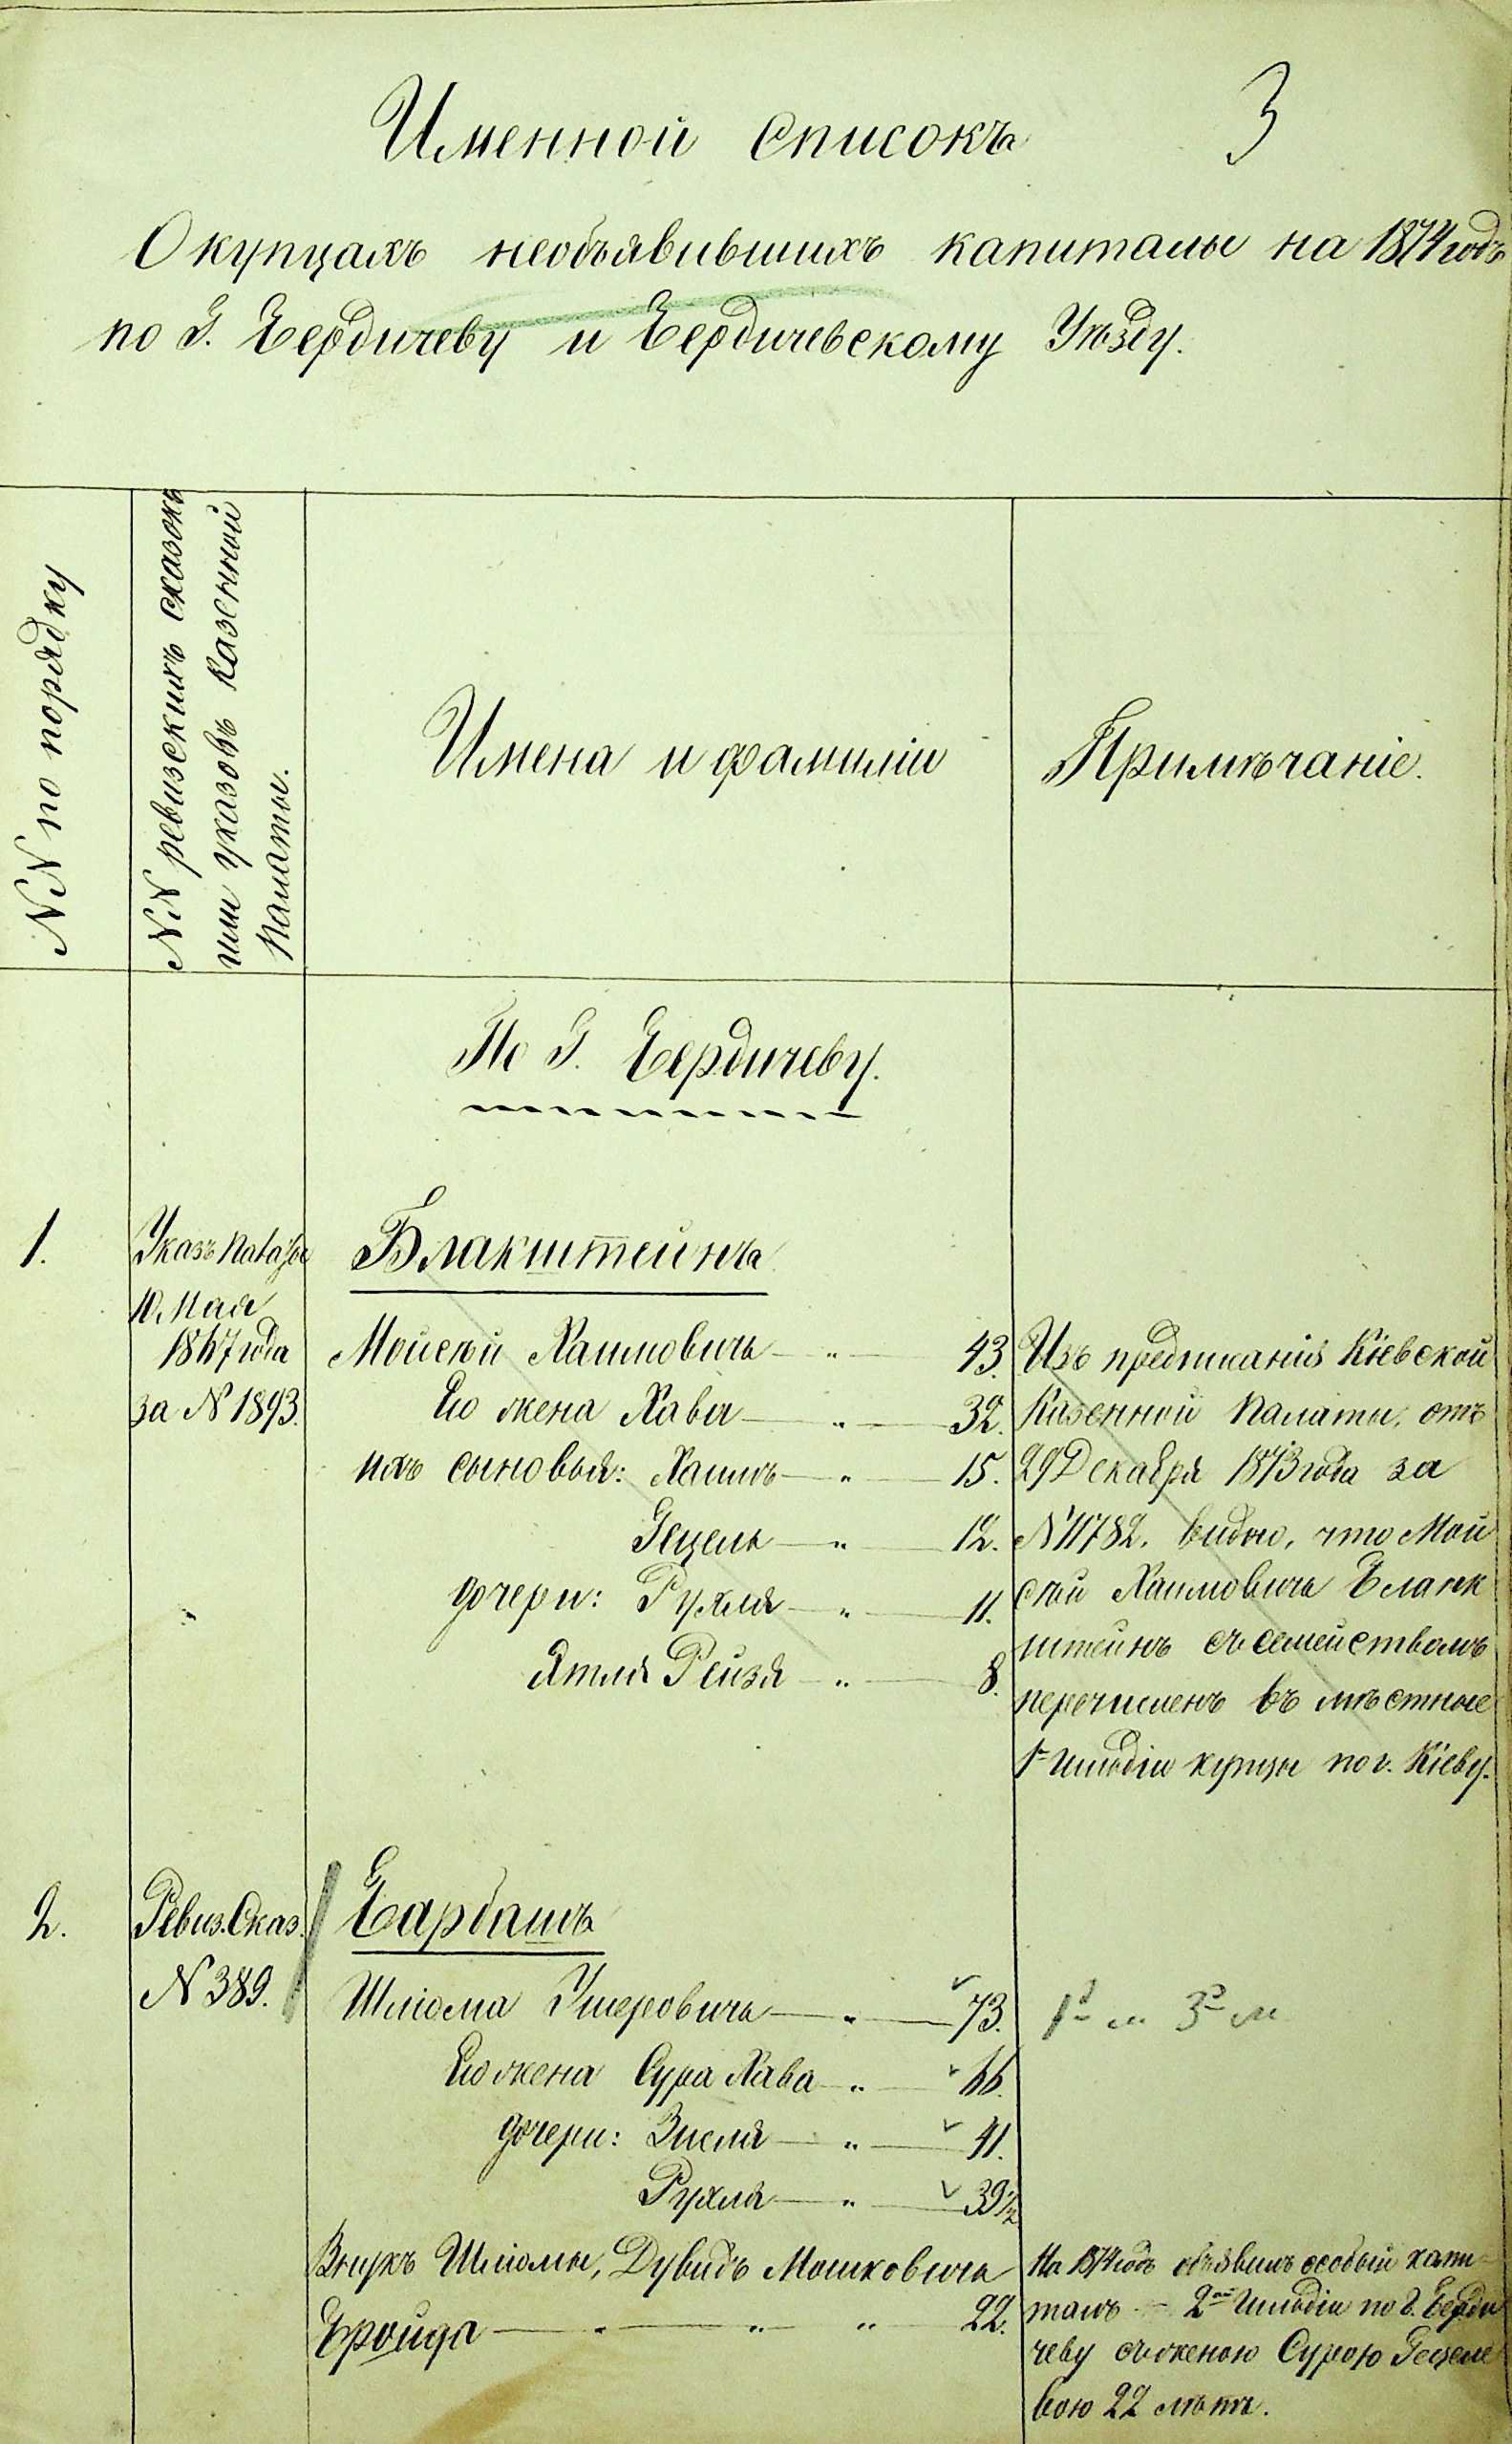 Именной списокъ
3
О купцахъ необъявившихъ капиталы на 1874 годъ
по Г. Бердичеву и Бердичевскому Уѣзду.
NN по порядку
NN ревизскихъ сказокъ
или указовъ Казенной
Палаты.
Имена и фамиліи
Примѣчаніе.
По Г. Бердичеву.
1.
Указъ Палаты
10. Мая
1867 года
за N 1893.
Блакштейнъ
Мойсей Хаимовичъ — " — 43.
Его жена Хава — " — 32.
ихъ сыновья: Хаимъ — " — 15.
Гецель — " — 12.
дочери: Рухля — " — 11.
Ятля Рейзя — " — 8.
Изъ предписанія Кіевской
Казенной Палаты, отъ
29 Декабря 1873 года за
N 11782, видно, что Мой
сей Хаимовичъ Бланк
штейнъ съ семействомъ
перечисленъ въ мѣстные
1й гильдіи купцы по г. Кіеву.
2.
Ревиз. Сказ.
N 389.
Барбашъ
Шліома Ушеровичъ — " — 73.
Его жена Сура Хава — " — 66.
дочери: Зисля — " — 41.
Рухля — " — 39½
Внукъ Шліомы, Дувидъ Мошковичъ
Бройда — " — " " 22.
На 1874 годъ объявилъ особый капи
талъ — 2ой гильдіи по г. Берди
чеву съ женою Сурою Гецеле
вою 22 лѣтъ.